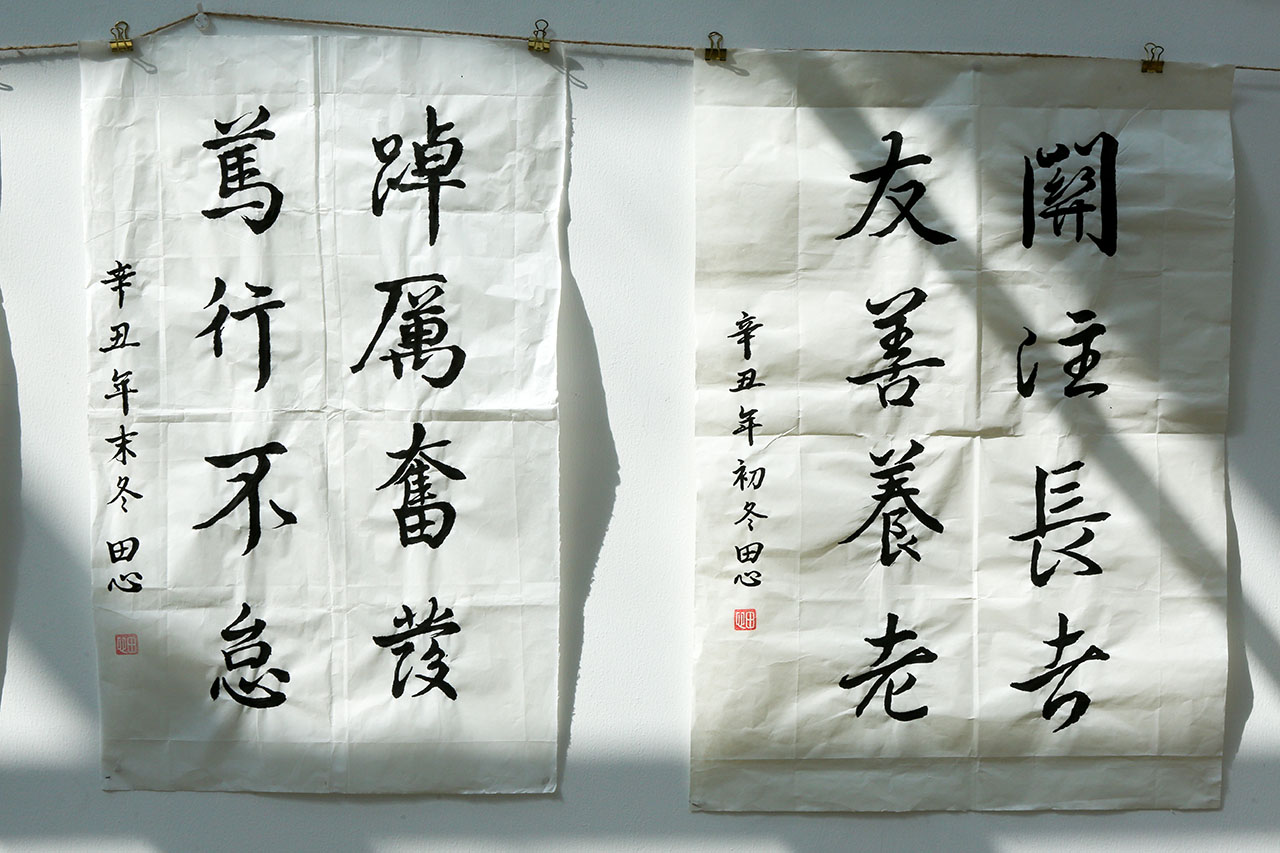 關注長者
友善養老
辛丑年初冬田心
踔厲奮發
篤行不怠
辛丑年末冬田心